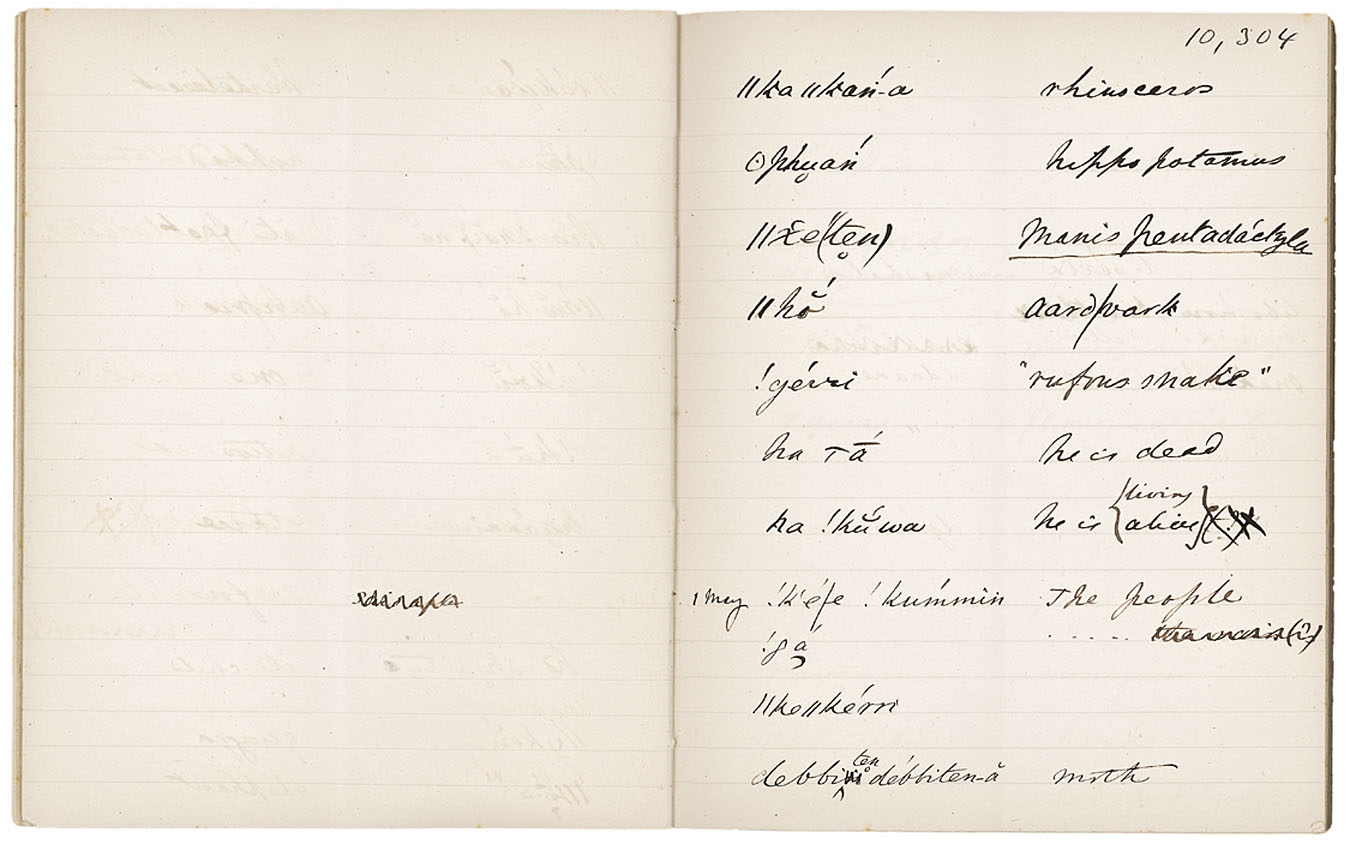 10,304
‖ka‖kań-a rhinoceros
ʘphu̯ań hippopotamus
‖x̌e(te̯n) Manis pentadáctyla
‖hǒ́ aardvark
!gérri "rufous snake"
ha tā́ he is dead
living
ha !kǔ́wa he is {alive}
1 May !k'é/e !kum´min The people
!gá .....
‖ke‖kérri
ten
debbi débbiten-å moth